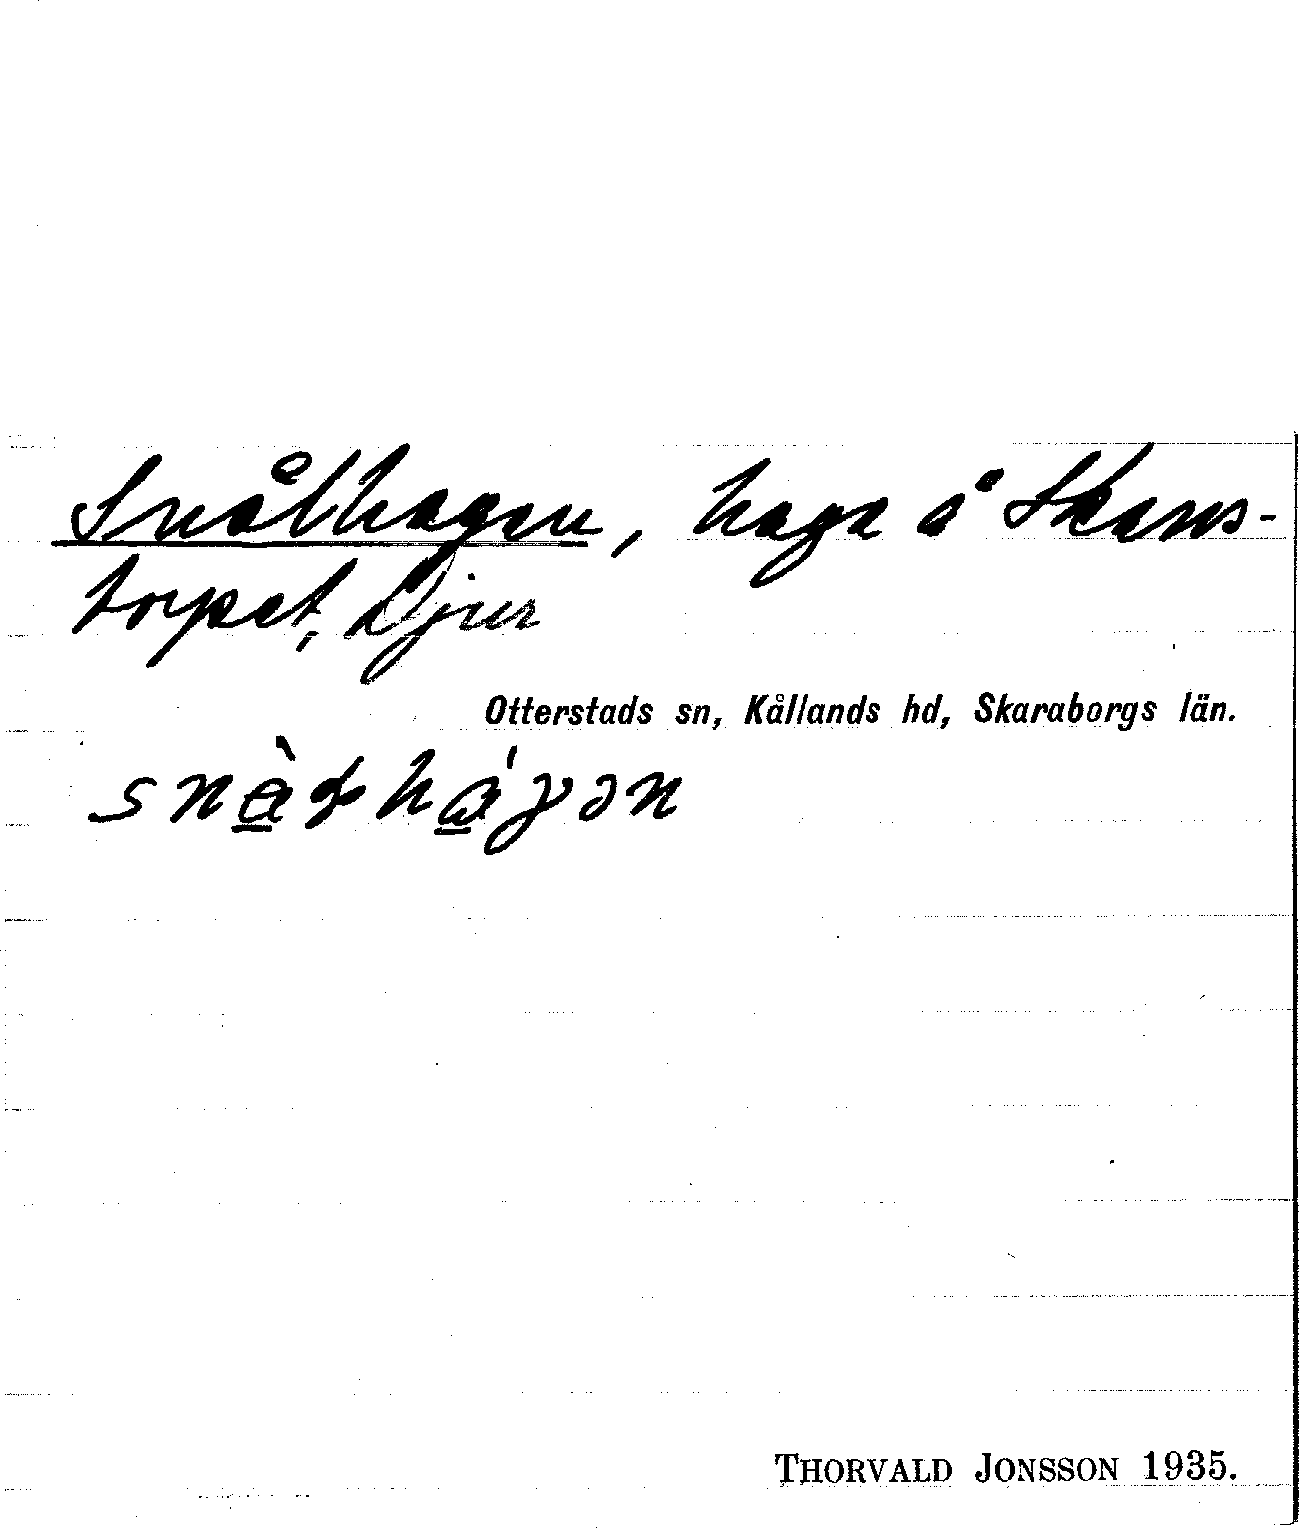 Snålhagen, haga å Skans-
torpet, Djur
Otterstads sn, Kållands hd, Skaraborgs län.
THORVALD JONSSON 1935.